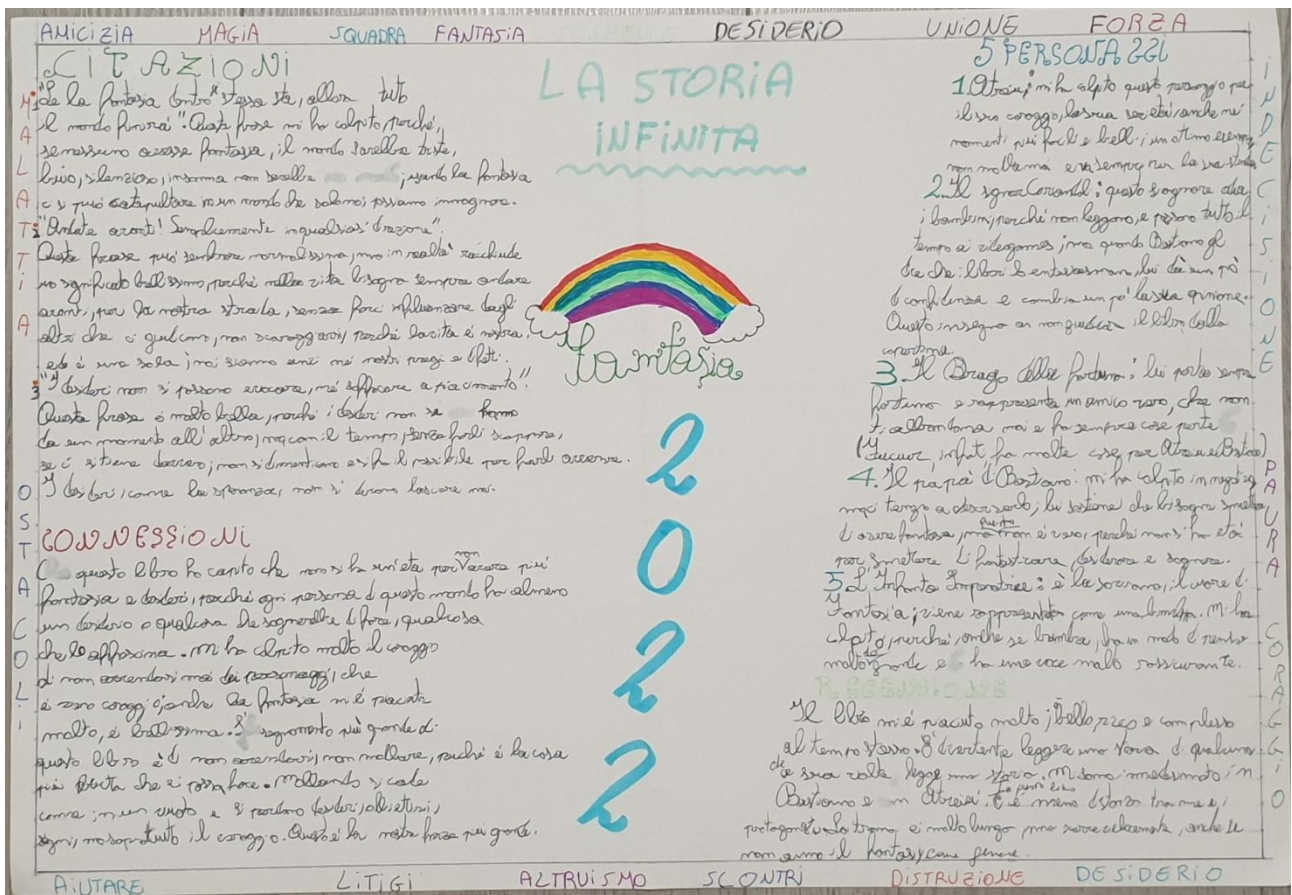 AMICIZIA MAGIA SQUADRA FANTASIA DESIDERIO UNIONE FORZA
MALATTIA
OSTACOLI
CITAZIONI
1 "Se la fantasia dentro stessa sta, allora tutto
il mondo finirà". Questa frase mi ha colpito, perché,
se nessuno avesse fantasia, il mondo sarebbe triste,
buio, silenzioso, insomma non sarebbe ; usando la fantasia
ci si può catapultare in un mondo che solo noi possiamo immaginare.
2 "Andate avanti! Semplicemente in qualsiasi direzione".
Questa frase può sembrare normalissima, ma in realtà racchiude
un significato bellissimo, perché nella vita bisogna sempre andare
avanti, per la nostra strada, senza farci influenzare dagli
altri che ci giudicano, non scoraggiarsi, perché la vita è nostra
ed è una sola, noi siamo unici nei nostri pregi e difetti.
3 "I desideri non si possono evocare, né soffocare a piacimento".
Questa frase è molto bella, perché i desideri non si fanno
da un momento all'altro, ma con il tempo, senza farli scappare,
se ci si tiene davvero, non si dimenticano e si fa il possibile per farli avverare.
I desideri, come la speranza, non si devono lasciare mai.
CONNESSIONI
questo libro ho capito che non si ha un'età per non avere più
fantasia e desideri, perché ogni persona di questo mondo ha almeno
un desiderio o qualcosa che sognerebbe di fare, qualcosa
che lo appassiona. Mi ha colpito molto il coraggio
di non arrendersi mai dei personaggi, che
è vero coraggio, anche la fantasia mi è piaciuta
molto, è bellissima. L' insegnamento più grande di
questo libro è di non arrendersi, non mollare, perché è la cosa
più che si possa fare. Mollando si cade
come in un vuoto e si perdono desideri, obiettivi,
sogni, ma soprattutto il coraggio. Questa è la nostra forza più grande.
LA STORIA
INFINITA
Fantasia
2
0
2
2
5 PERSONAGGI
1. Atreiu; mi ha colpito questo personaggio per
il suo coraggio, la sua , anche nei
momenti più facili e belli; un ottimo esempio
non molla mai e va sempre per la sua strada
2. Il signor Coriandoli; questo signore odia
i bambini, perché non leggono, e passano tutto il
tempo ai videogames, ma quando Bastiano gli
dice che i libri lo entusiasmano, lui dà un pò
di confidenza e cambia un pò la sua opinione.
Questo insegna a non giudicare il libro dalla
copertina.
3. Il Drago della fortuna; lui porta sempre
fortuna e rappresenta un amico vero, che non
ti abbandona mai e fa sempre la sua parte
(Fucur, infatti fa molte cose per Atreiu e Bastiano)
4. Il papà di Bastiano: mi ha colpito in negativo,
ma ci tengo a descriverlo; lui sostiene che bisogna smettere
di avere fantasia, ma questo non è vero, perché non si ha età
per smettere di fantasticare, desiderare e sognare.
5. L'Infanta Imperatrice: è la sovrana, il cuore di
Fantàsia, viene rappresentata come una bambina. Mi ha
colpito, perché, anche se bambina, ha un modo di pensare
molto da grande e ha una voce molto rassicurante.
RECENSIONE
Il libro mi è piaciuto molto; bello e complesso
al tempo stesso. È divertente leggere una storia di qualcuno
che a sua volta legge una storia. Mi sono immedesimato in
Bastiano e in Atreiu. C'è meno distanza tra me e i
protagonisti. La trama è molto lunga, ma scorre velocemente, anche se
non amo il fantasy come genere.
INDECISIONE
PAURA
CORAGGIO
AIUTARE LITIGI ALTRUISMO SCONTRI DISTRUZIONE DESIDERIO